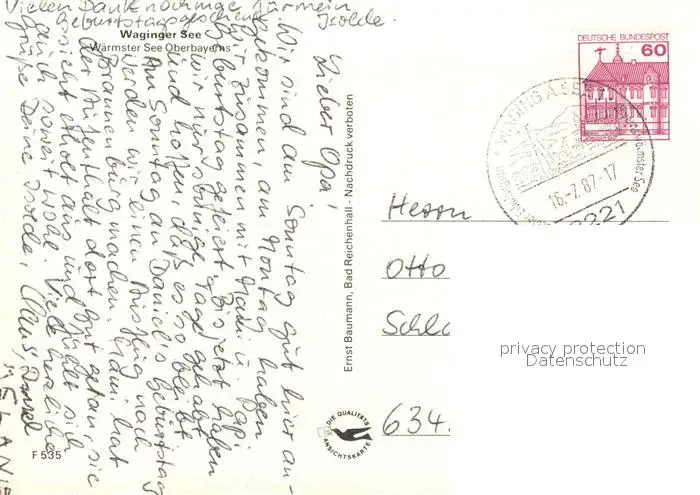 Vielen Dank nochmal für mein
Geburtstagsgeschenk Isolde.
Waginger See
Wärmster See Oberbayerns
Lieber Opa!
Wir sind am Sonntag gut hier an-
gekommen, am Montag haben
wir zusammen mit Mami u. Papi
Geburtstag gefeiert. Bis jetzt haben
wir nur sonnige Tage gehabt
und hoffen, daß es so bleibt.
Am Sonntag an Daniels Geburtstag
werden wir einen Ausflug nach
Brannenburg machen. Mami hat
der Aufenthalt dort gut getan, sie
sieht erholt aus und fühlt sich
auch soweit wohl. Viele herzliche
Grüße Deine Isolde, Claus, Daniel
F 535
Ernst Baumann, Bad Reichenhall - Nachdruck verboten
DIE QUALITÄTS
ANSICHTSKARTE
DEUTSCHE BUNDESPOST
60
WAGING A SEE
16.-7.87-17
8221
Herrn
Otto
634.
privacy protection
Datenschutz